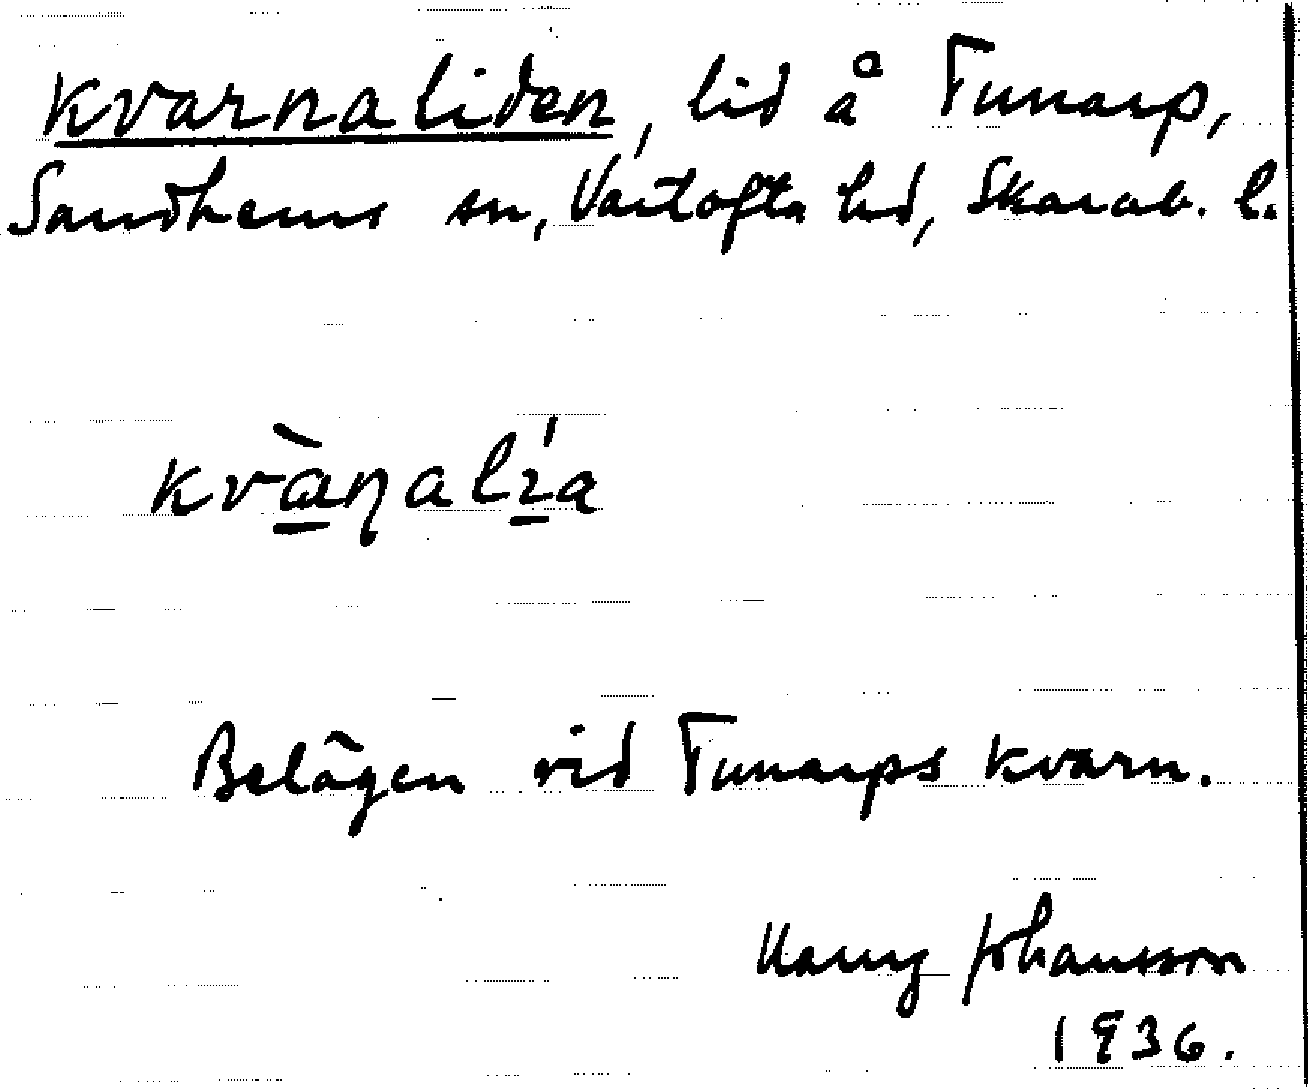 Kvarnaliden, lid å Tunarp,
Sandhems sn, Vartofta hd, Skarab. l.
kvàɳalí̱a
Belägen vid Tunarps kvarn.
Harry Johansson
1936.